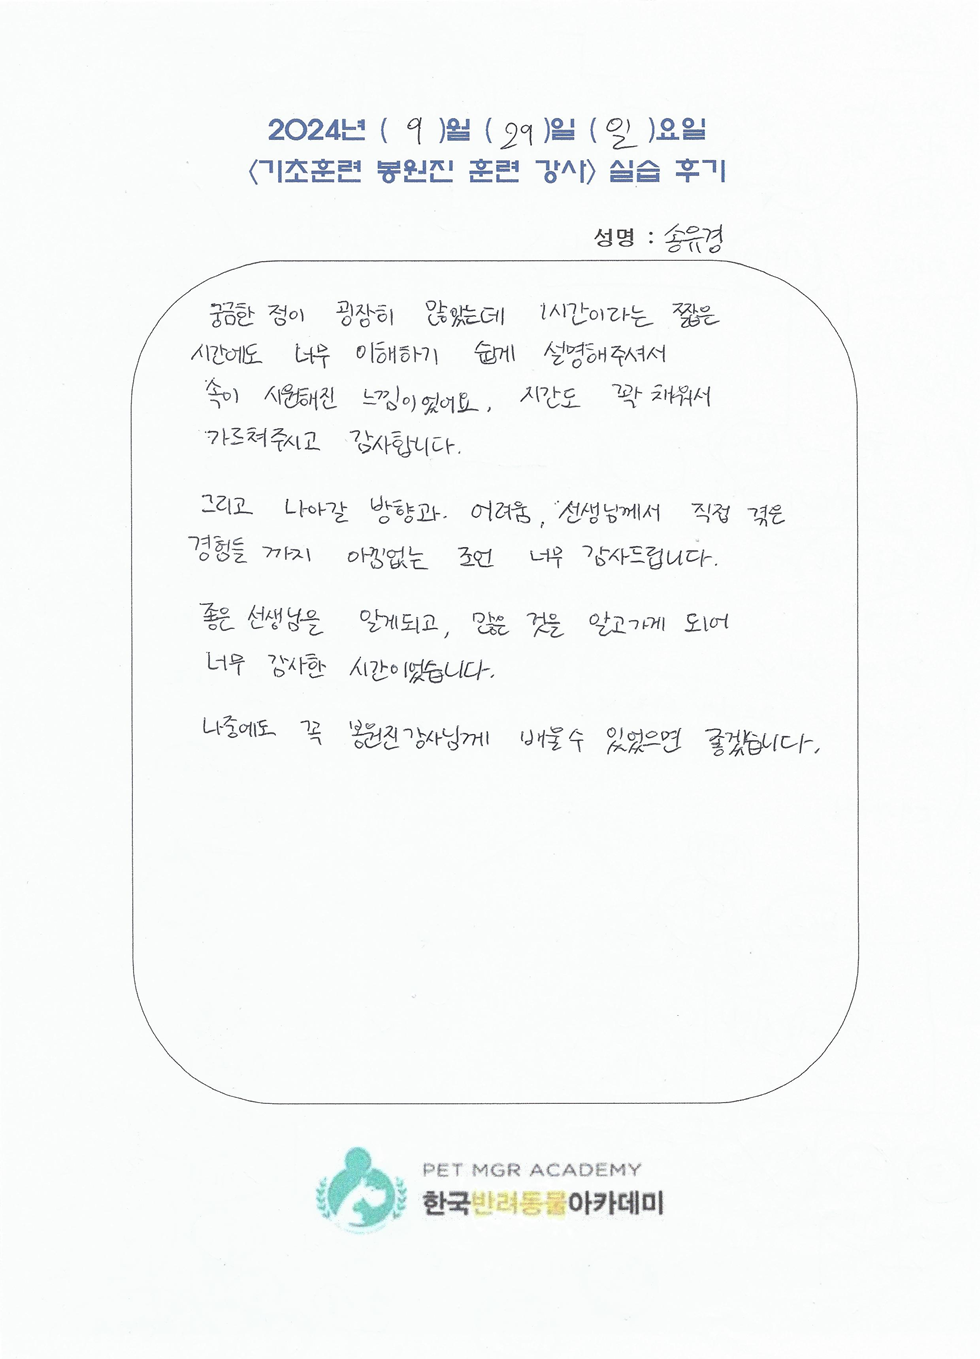 2024년 ( 9 )월 ( 29 )일 ( 일 )요일
<기초훈련 봉원진 훈련 강사> 실습 후기
성명 : 송유경
궁금한 점이 굉장히 많았는데 1시간이라는 짧은
시간에도 너무 이해하기 쉽게 설명해주셔서
속이 시원해진 느낌이었어요, 시간도 꽉 채워서
가르쳐주시고 감사합니다.
그리고 나아갈 방향과. 어려움, 선생님께서 직접 겪은
경험들 까지 아낌없는 조언 너무 감사드립니다.
좋은 선생님을 알게되고, 많은 것을 알고가게 되어
너무 감사한 시간이었습니다.
나중에도 꼭 봉원진강사님께 배울수 있었으면 좋겠습니다.
PET MGR ACADEMY
한국반려동물아카데미